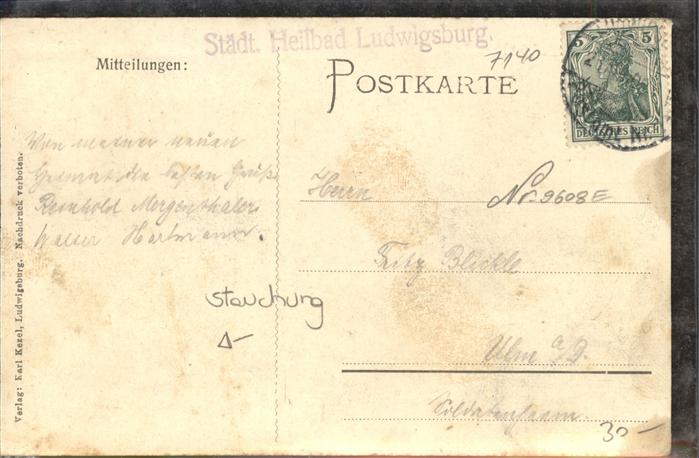 Städt. Heilbad Ludwigsburg.
7140
Mitteilungen:
POSTKARTE
5 5
DEUTSCHES REICH
Von meiner neuen
Heimat die besten Grüße
Reinhold Mergenthaler
Walter Hartmann.
Herrn
Nr. 9608E
Fritz Blickle
Stauchung
Ulm a/D.
Soldatenheim
30 -
Verlag: Karl Kezel, Ludwigsburg. Nachdruck verboten.